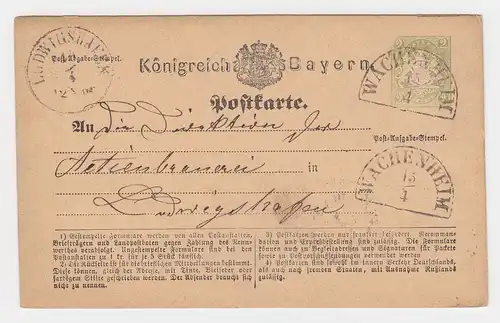 LUDWIGSHAFEN
Post-Abgabe-Stempel.
Königreich Bayern.
WACHENHEIM
13
4
Postkarte.
An die Direktion der
Post-Ausgabe-Stempel.
Actienbrauerei in
Ludwigshafen
WACHENHEIM
13
4
1) Gestempelte Formulare werden von allen Postanstalten,
Briefträgern und Landpostboten gegen Zahlung des Nenn-
werthes verabfolgt. Ungestempelte Formulare sind bei den
Postanstalten zu 1 kr. für je 5 Stück käuflich.
2) Die Rückseite ist für die brieflichen Mittheilungen bestimmt.
Diese können, gleich der Adresse, mit Tinte, Bleistifter oder
farbigem Stifte geschrieben werden. Der Absender braucht sich
nicht zu nennen.
3) Postkarten werden nur frankirt befördert.
und Expreßbestellung sind zulässig. Die Formulare können
auch zu Begleitadressen und Signaturen für Packete
sowie zu Postanweisungen nicht benützt werden.
4) Postkarten sind sowohl im innern Verkehr Deutschlands,
als auch nach fremden Staaten, mit Ausnahme Rußlands
zulässig.